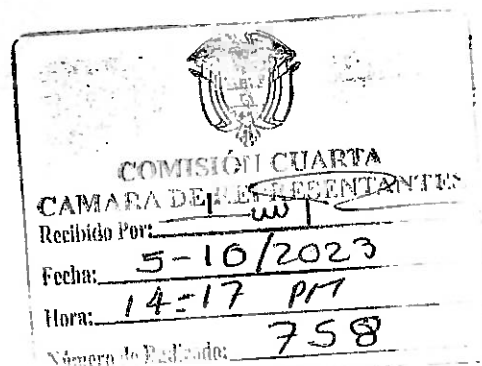 COMISIÓN CUARTA
CAMARA DE REPRESENTANTES
Recibido Por:
Fecha: 5-10/2023
Hora: 14:17 PM
Número de Radicado: 758